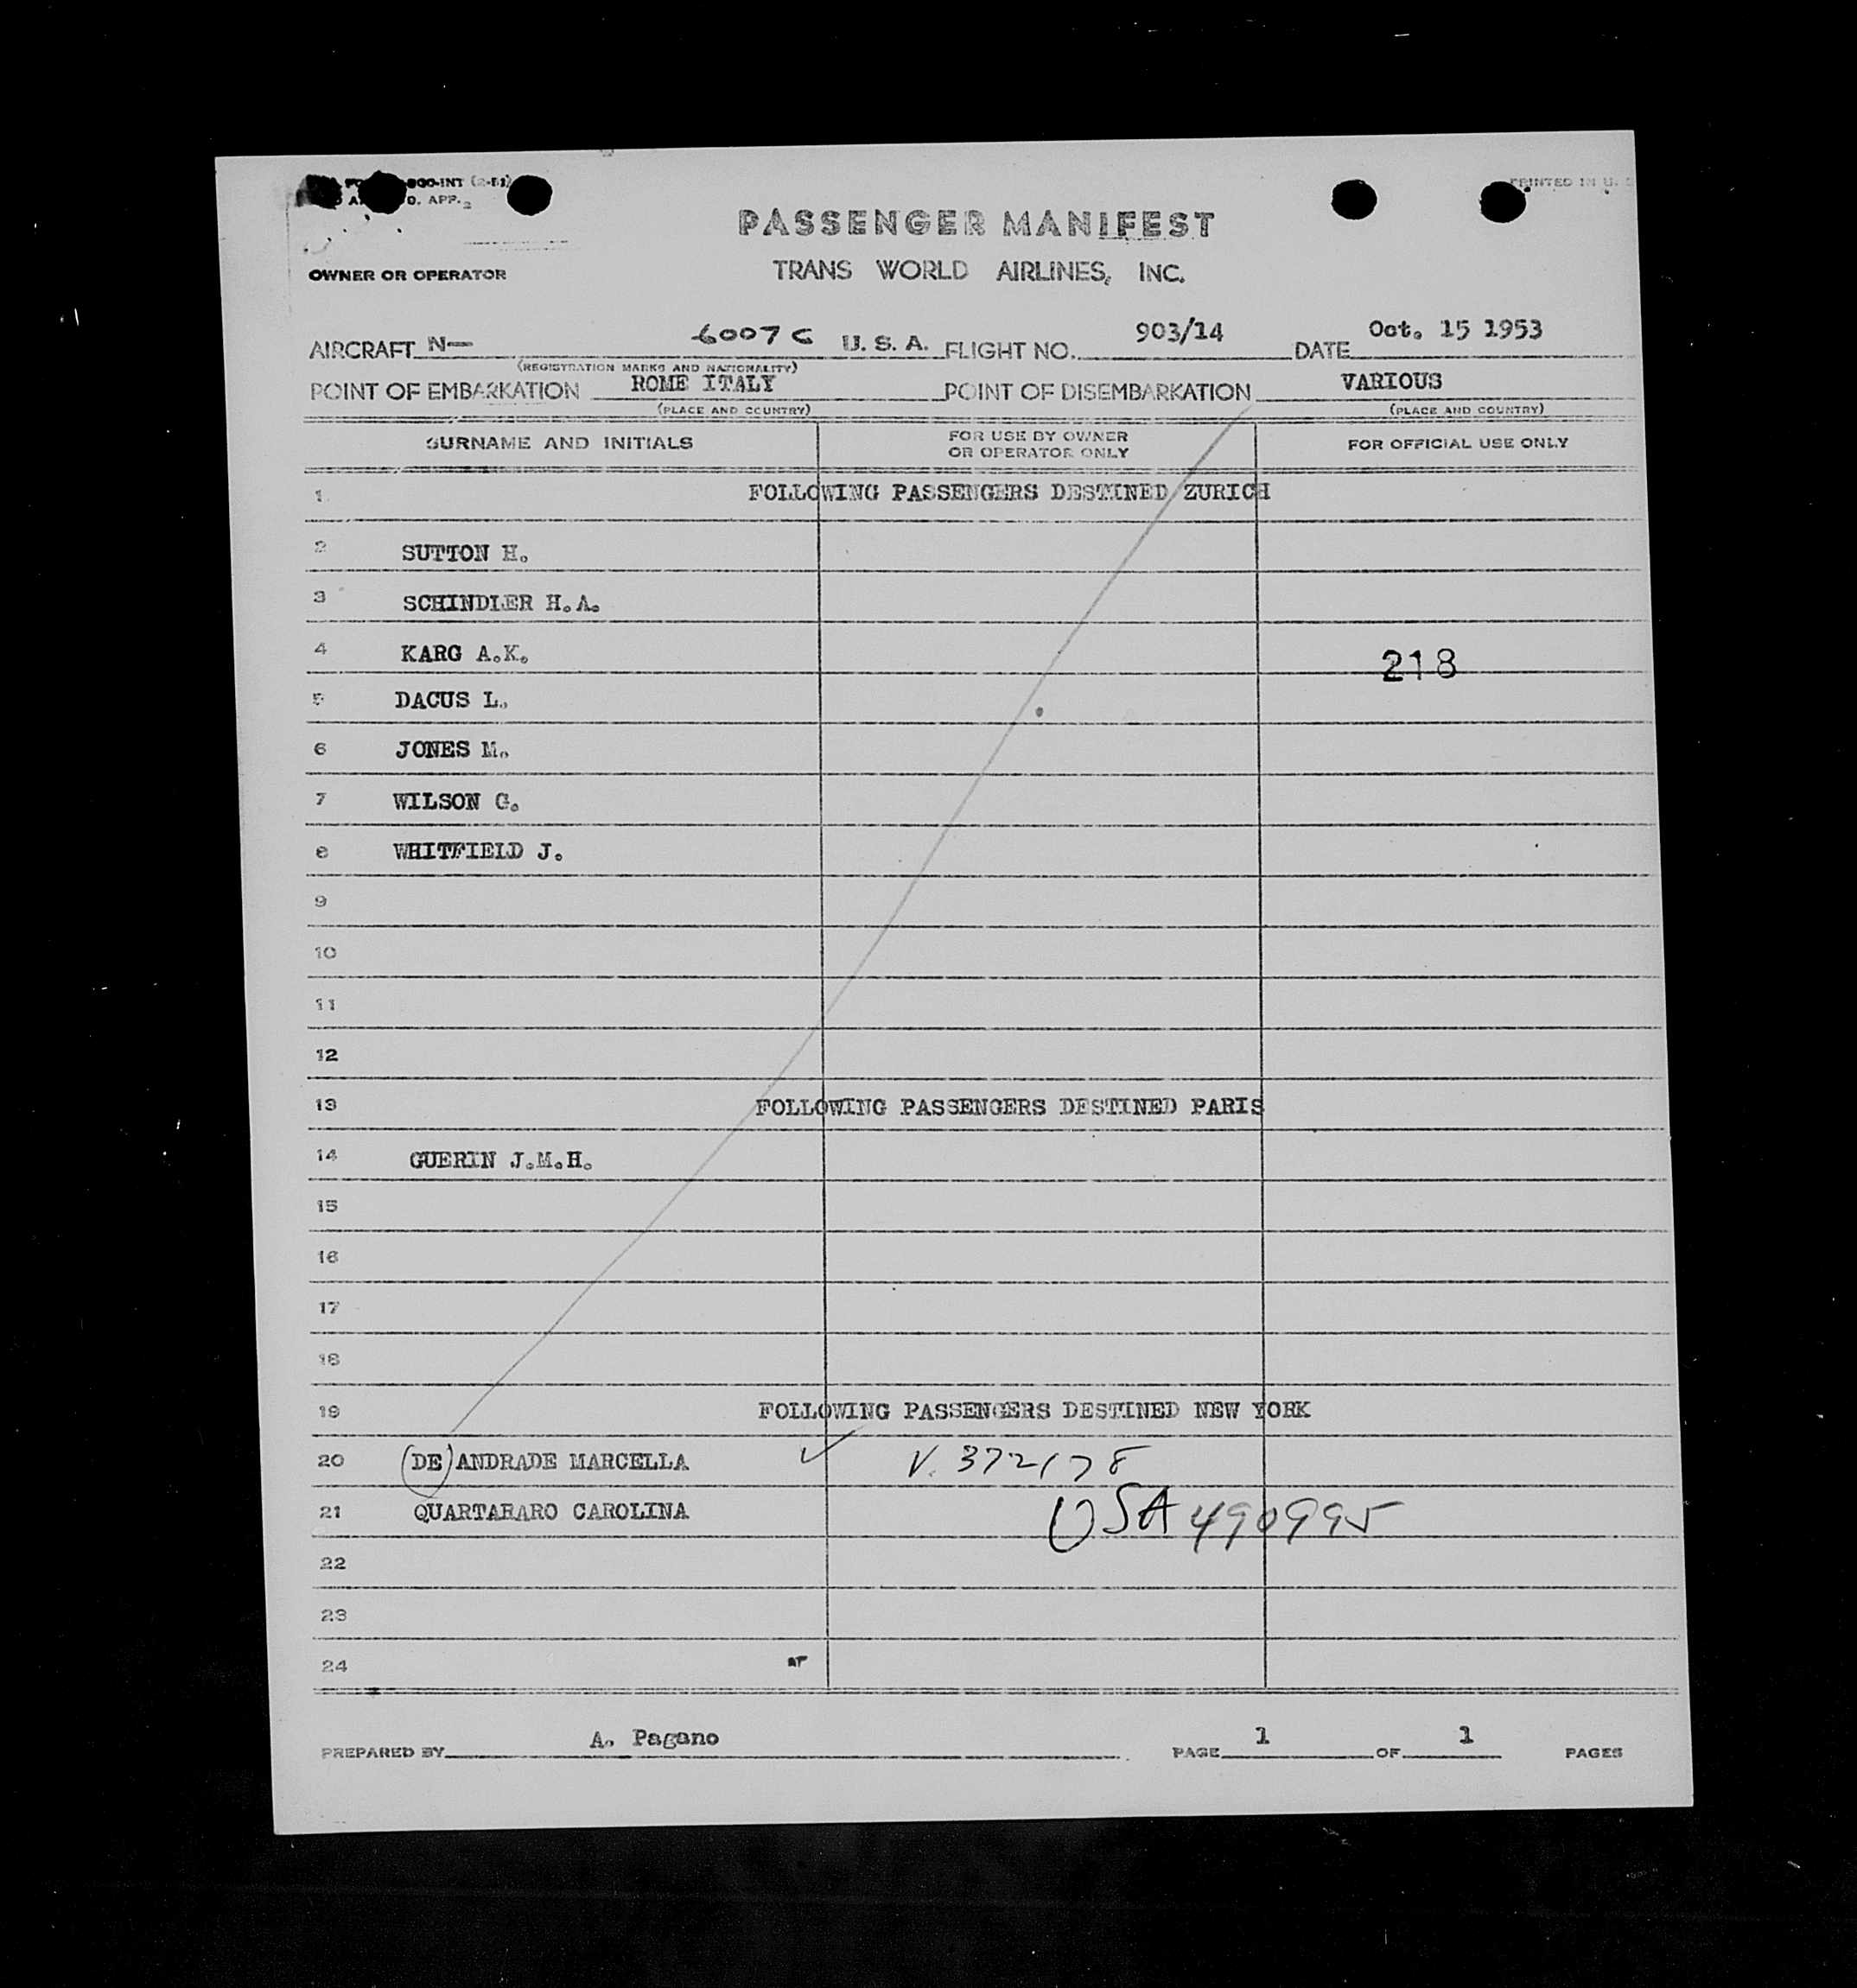 800-INT (2-51)
PRINTED IN U.
O. APP.
PASSENGER MANIFEST
OWNER OR OPERATOR TRANS WORLD AIRLINES, INC.
AIRCRAFT N— 6007 C U. S. A. FLIGHT NO. 903/14 DATE Oct. 15 1953
(REGISTRATION MARKS AND NATIONALITY)
POINT OF EMBARKATION ROME ITALY POINT OF DISEMBARKATION VARIOUS
(PLACE AND COUNTRY) (PLACE AND COUNTRY)
SURNAME AND INITIALS FOR USE BY OWNER OR OPERATOR ONLY FOR OFFICIAL USE ONLY
1 FOLLOWING PASSENGERS DESTINED ZURICH
2 SUTTON H.
3 SCHINDLER H.A.
4 KARG A.K. 218
5 DACUS L.
6 JONES M.
7 WILSON G.
8 WHITFIELD J.
9
10
11
12
13 FOLLOWING PASSENGERS DESTINED PARIS
14 GUERIN J.M.H.
15
16
17
18
19 FOLLOWING PASSENGERS DESTINED NEW YORK
20 (DE) ANDRADE MARCELLA ✓ V. 372178
21 QUARTARARO CAROLINA USA 490995
22
23
24
PREPARED BY A. Pagano PAGE 1 OF 1 PAGES